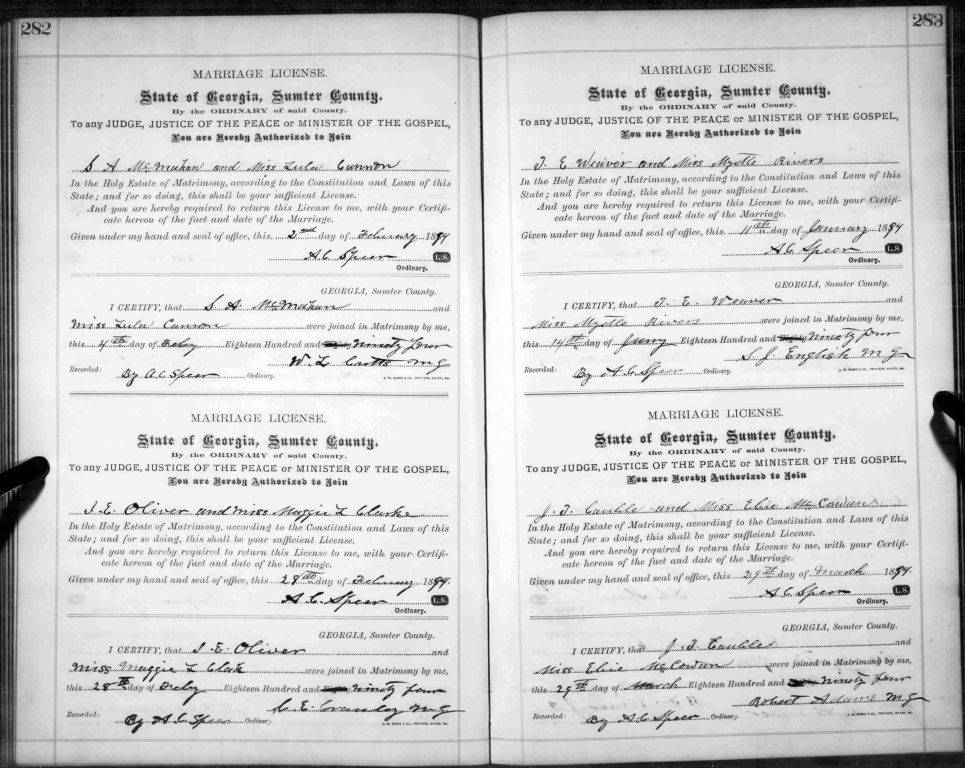 282
MARRIAGE LICENSE.
State of Georgia, Sumter County.
By the ORDINARY of said County.
To any JUDGE, JUSTICE OF THE PEACE or MINISTER OF THE GOSPEL,
You are Hereby Authorized to Join
S A McMuhan and Miss Lula Cannon
In the Holy Estate of Matrimony, according to the Constitution and Laws of this
State; and for so doing, this shall be your sufficient License.
And you are hereby required to return this License to me, with your Certifi-
cate hereon of the fact and date of the Marriage.
Given under my hand and seal of office, this 2nd day of February 1894
A C Speer L.S.
Ordinary.
GEORGIA, Sumter County.
I CERTIFY, that S A McMuhan and
Miss Lula Cannon were joined in Matrimony by me,
this 4th day of Feby Eighteen Hundred and Ninety four
W. L M G
Recorded: By A C Speer Ordinary.
MARRIAGE LICENSE.
State of Georgia, Sumter County.
By the ORDINARY of said County.
To any JUDGE, JUSTICE OF THE PEACE or MINISTER OF THE GOSPEL,
You are Hereby Authorized to Join
I. E. Oliver and Miss Maggie L Clarke
In the Holy Estate of Matrimony, according to the Constitution and Laws of this
State; and for so doing, this shall be your sufficient License.
And you are hereby required to return this License to me, with your Certifi-
cate hereon of the fact and date of the Marriage.
Given under my hand and seal of office, this 28th day of February 1894.
A. C. Speer L.S.
Ordinary.
GEORGIA, Sumter County.
I CERTIFY, that I. E. Oliver and
Miss Maggie L Clark were joined in Matrimony by me,
this 28th day of Feby Eighteen Hundred and Ninety four
C. E. Crawley M G
Recorded: By A C Speer Ordinary.
283
MARRIAGE LICENSE.
State of Georgia, Sumter County.
By the ORDINARY of said County.
To any JUDGE, JUSTICE OF THE PEACE or MINISTER OF THE GOSPEL,
You are Hereby Authorized to Join
T. E Weaver and Miss Myrtle Rivers
In the Holy Estate of Matrimony, according to the Constitution and Laws of this
State; and for so doing, this shall be your sufficient License.
And you are hereby required to return this License to me, with your Certifi-
cate hereon of the fact and date of the Marriage.
Given under my hand and seal of office, this 11th day of January 1894
A C Speer L.S.
Ordinary.
GEORGIA, Sumter County.
I CERTIFY, that T. E. Weaver and
Miss Myrtle Rivers were joined in Matrimony by me,
this 14th day of Jany Eighteen Hundred and Ninety four
S. J. English M G
Recorded: By A C Speer Ordinary.
MARRIAGE LICENSE.
State of Georgia, Sumter County.
By the ORDINARY of said County.
To any JUDGE, JUSTICE OF THE PEACE or MINISTER OF THE GOSPEL,
You are Hereby Authorized to Join
J. T. Cauble and Miss Elie McCowan
In the Holy Estate of Matrimony, according to the Constitution and Laws of this
State; and for so doing, this shall be your sufficient License.
And you are hereby required to return this License to me, with your Certifi-
cate hereon of the fact and date of the Marriage.
Given under my hand and seal of office, this 29th day of March 1894.
A C Speer L.S.
Ordinary.
GEORGIA, Sumter County.
I CERTIFY, that J. T. Cauble and
Miss Elie McCowan were joined in Matrimony by me,
this 29th day of March Eighteen Hundred and Ninety four
Robert Adams M G
Recorded: By A C Speer Ordinary.